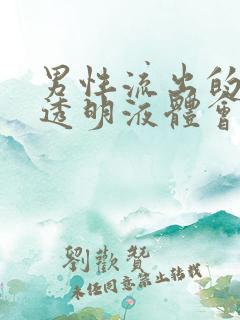 男性流出的
透明液體會
劉歡贊
未任同意禁止轉載